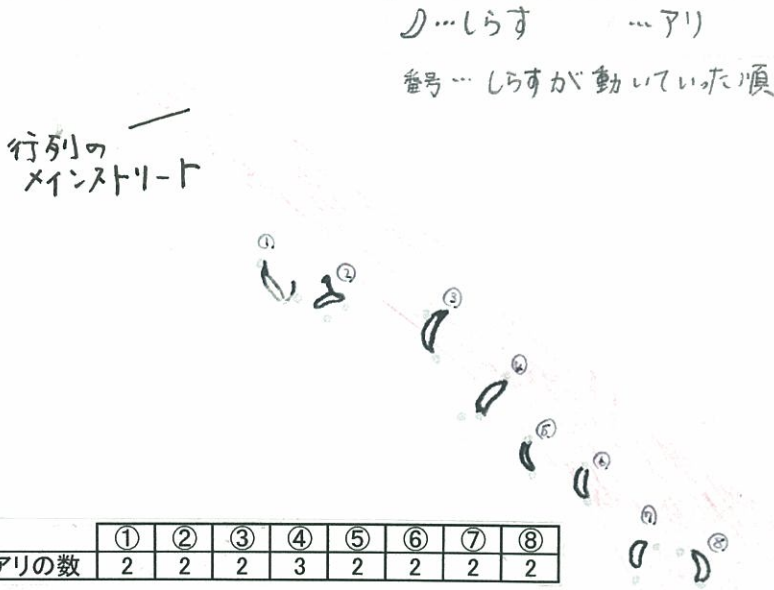 …しらす …アリ
番号… しらすが動いていった順
行列の
メインストリート
①
②
③
④
⑤
⑥
⑦
⑧
① ② ③ ④ ⑤ ⑥ ⑦ ⑧
アリの数 2 2 2 3 2 2 2 2